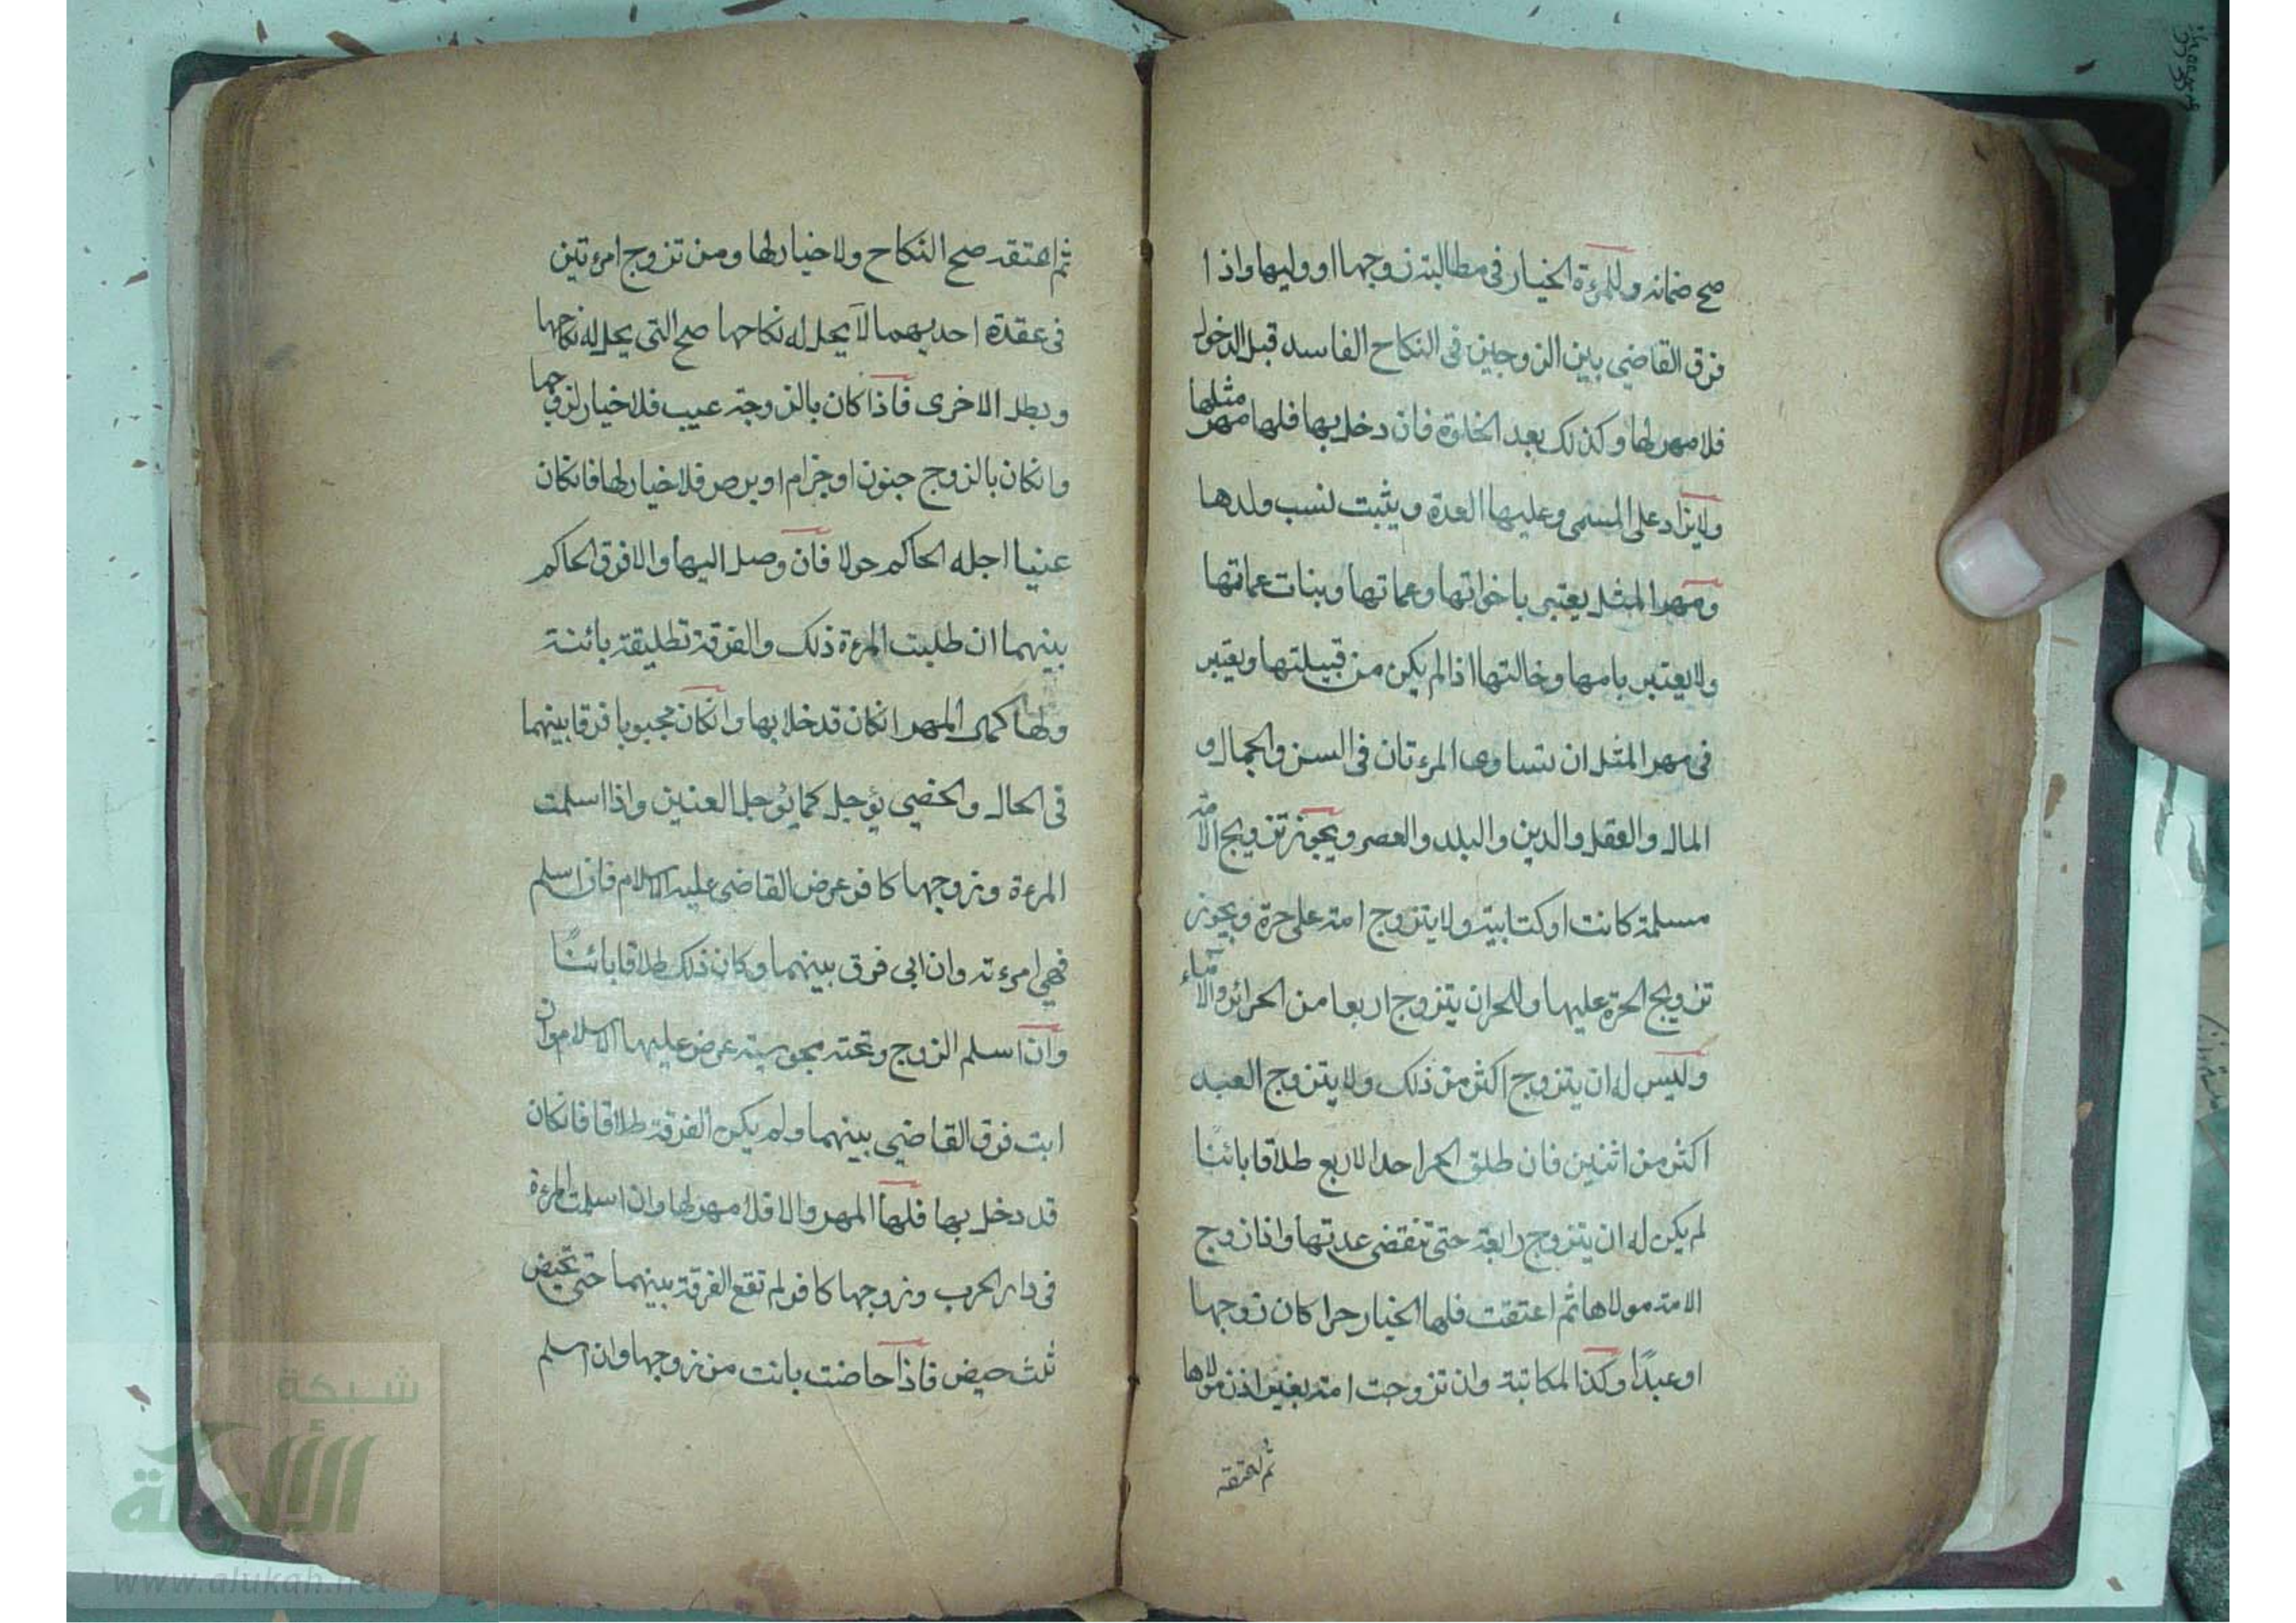 صح ضمانه وللمرءة الخيار في مطالبة زوجها او وليها واذا
فرق القاضي بين الزوجين في النكاح الفاسد قبل الدخول
فلا مهر لها وكذلك بعد الخلوة فان دخل بها فلها مهر مثلها
ولا يزاد على المسمى وعليها العدة ويثبت نسب ولدها
ومهر المثل يعتبر باخواتها وعماتها وبنات عماتها
ولا يعتبر بامها وخالتها اذا لم يكن من قبيلتها ويعتبر
في مهر المثل ان يتساوى المرءتان في السن والجمال و
المال والعقل والدين والبلد والعصر ويجوز تزويج الامة
مسلمة كانت او كتابية ولا يتزوج امة على حرة ويجوز
تزويج الحرة عليها وللحر ان يتزوج اربعا من الحرائر والاماء
وليس له ان يتزوج اكثر من ذلك ولا يتزوج العبد
اكثر من اثنين فان طلق الحر احد الاربع طلاقا بائنًا
لم يكن له ان يتزوج رابعة حتى تنقضى عدتها واذا زوج
الامة مولاها ثم اعتقت فلها الخيار حرا كان زوجها
او عبدًا وكذا المكاتبة وان تزوجت امة بغير اذن مولاها
ثم اعتقه
ثم اعتقه صح النكاح ولا خيار لها ومن تزوج امرءتين
في عقدة احديهما لا يحل له نكاحها صح التى يحل له نكاحها
وبطل الاخرى فاذا كان بالزوجة عيب فلا خيار لزوجها
وانكان بالزوج جنون او جزام او برص فلا خيار لها فانكان
عنينا اجله الحاكم حولا فان وصل اليها والا فرق الحاكم
بينهما ان طلبت المرءة ذلك والفرقة تطليقة بائنة
ولها كمال المهر انكان قد خلا بها وانكان مجبوبا فرقا بينهما
في الحال والخصي يؤجل كما يؤجل العنين واذا اسلمت
المرءة وزوجها كافر عرض القاضى عليه الاسلام فان اسلم
فهي امرءته وان ابى فرق بينهما وكان ذلك طلاقا بائنًا
وان اسلم الزوج وتحته مجوسية عرض عليها الاسلام وان
ابت فرق القاضي بينهما ولم يكن الفرقة طلاقا فانكان
قد دخل بها فلها المهر والا فلا مهر لها وان اسلمت المرءة
في دار الحرب وزوجها كافر لم تقع الفرقة بينهما حتى تحيض
ثلث حيض فاذا حاضت بانت من زوجها وان اسلم
شبكة
الألوكة
www.alukah.net